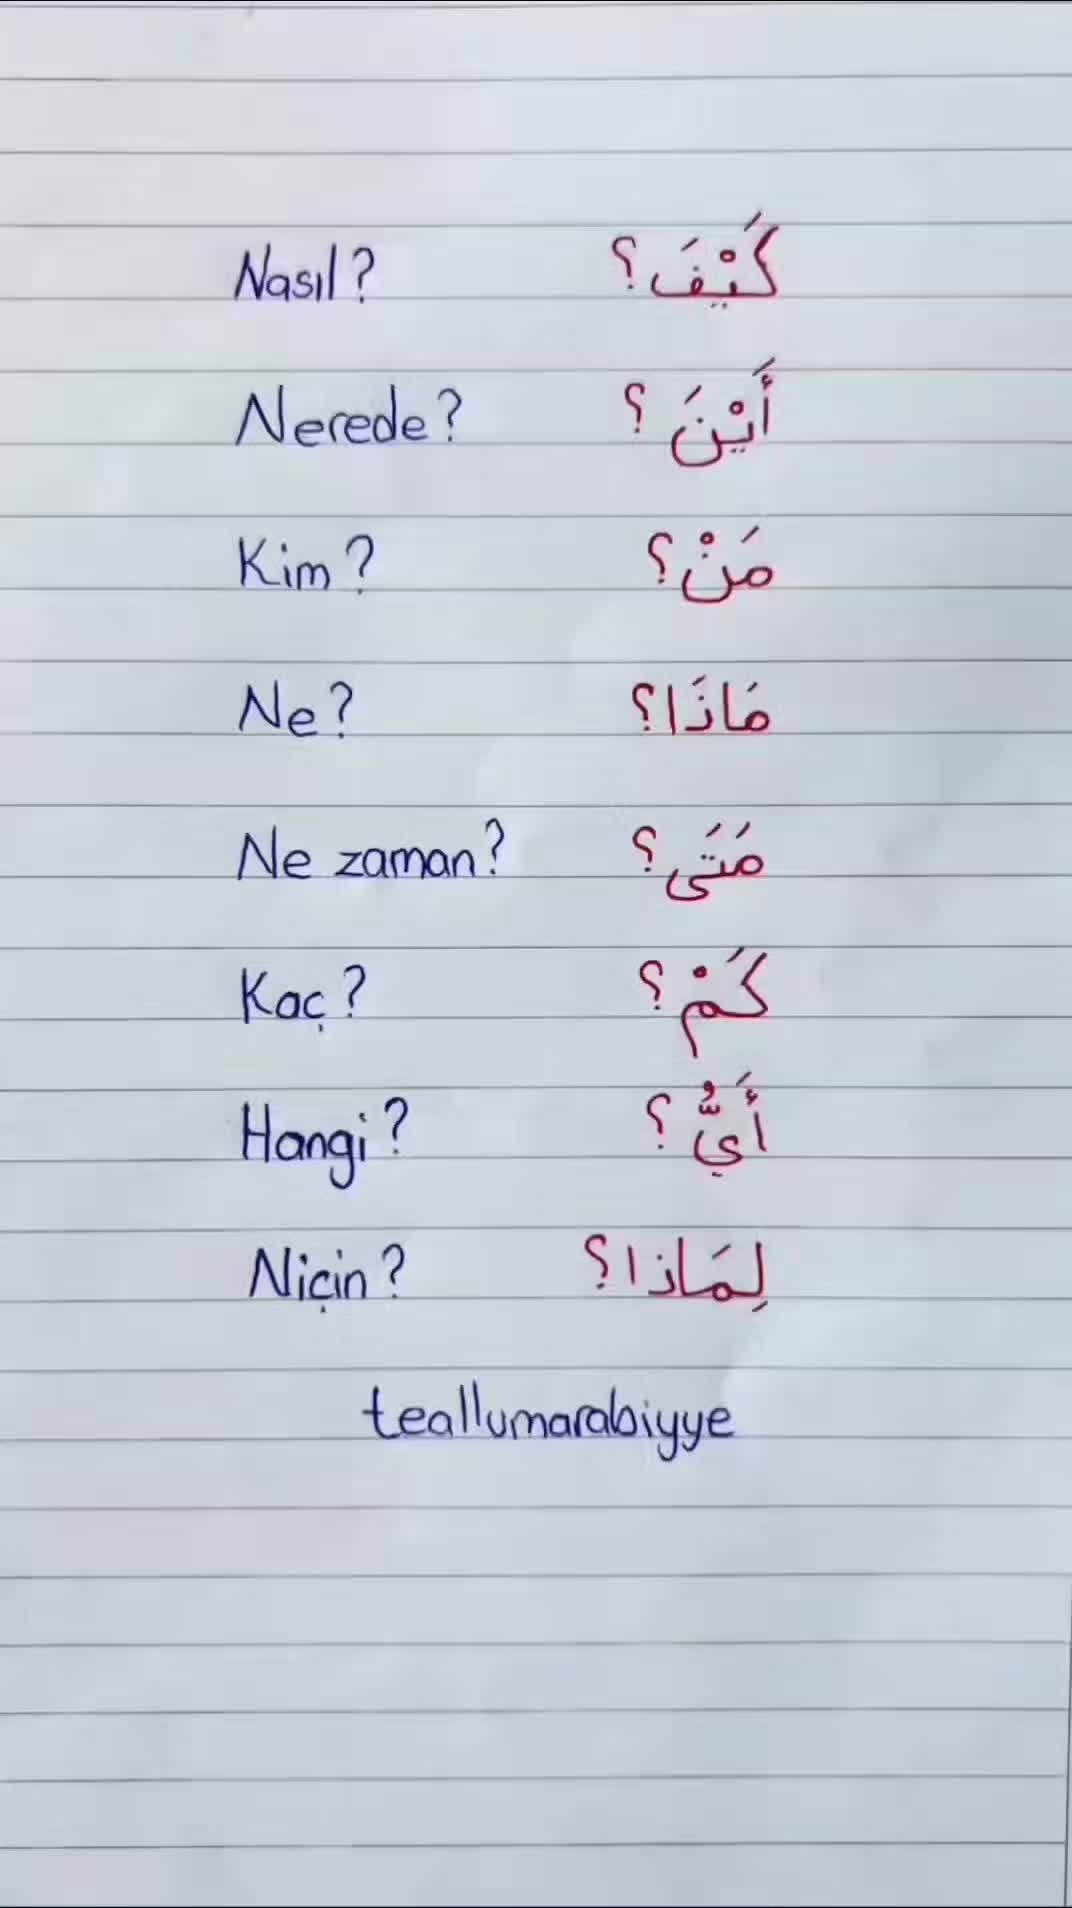 Nasıl? كَيْفَ؟
Nerede? أَيْنَ؟
Kim? مَنْ؟
Ne? مَاذَا؟
Ne zaman? مَتَى؟
Kaç? كَمْ؟
Hangi? أَيُّ؟
Niçin? لِمَاذا؟
teallumarabiyye